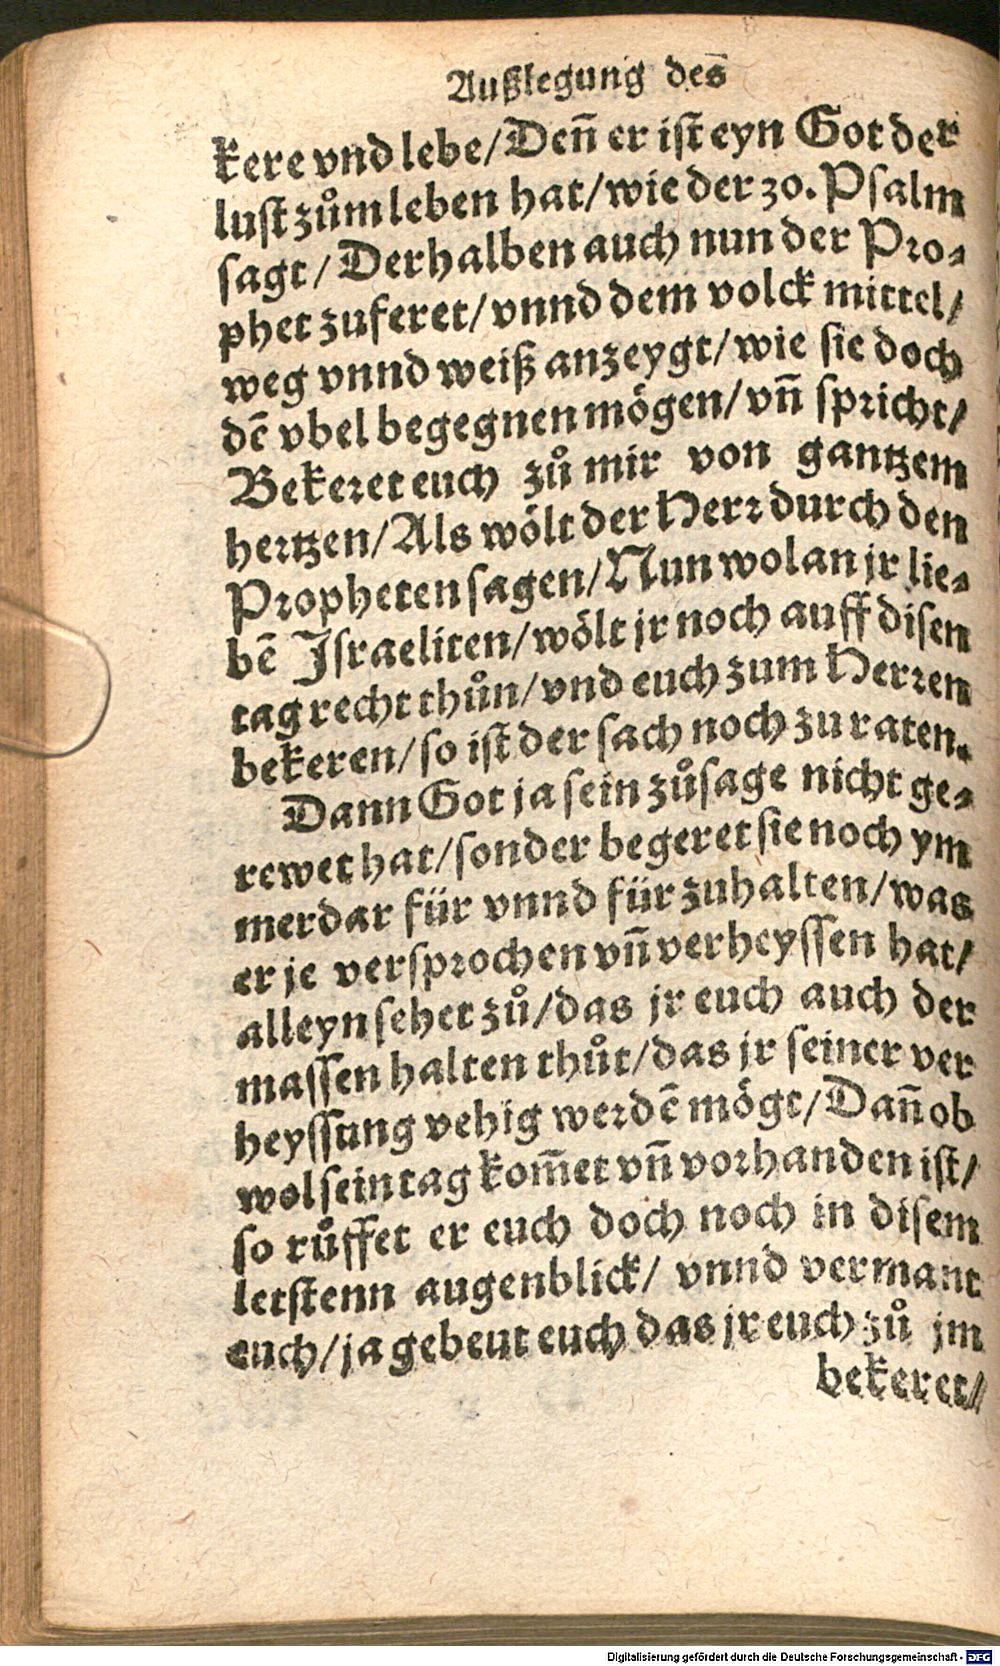 Außlegung des
kere vnd lebe/Deñ er ist eyn Got der
lust zům leben hat/wie der 30. Psalm
sagt/Derhalben auch nun der Pro-
phet zuferet/vnnd dem volck mittel/
weg vnnd weiß anzeygt/wie sie doch
dē vbel begegnen mögen/vñ spricht/
Bekeret euch zů mir von gantzem
hertzen/Als wölt der Herr durch den
Propheten sagen/Nun wolan jr lie-
bē Israeliten/wölt jr noch auff disen
tag recht thůn/vnd euch zum Herren
bekeren/so ist der sach noch zu raten.
Dann Got ja sein zůsage nicht ge-
rewet hat/sonder begeret sie noch ym
merdar für vnnd für zuhalten/was
er je versprochen vñ verheyssen hat/
alleyn sehet zů/das jr euch auch der
massen halten thůt/das jr seiner ver
heyssung vehig werdē mögt/Dañ ob
wol sein tag kom̃et vñ vorhanden ist/
so růffet er euch doch noch in disem
letstenn augenblick/ vnnd vermant
euch/ja gebeut euch das jr euch zů jm
bekeret/
Digitalisierung gefördert durch die Deutsche Forschungsgemeinschaft - DFG